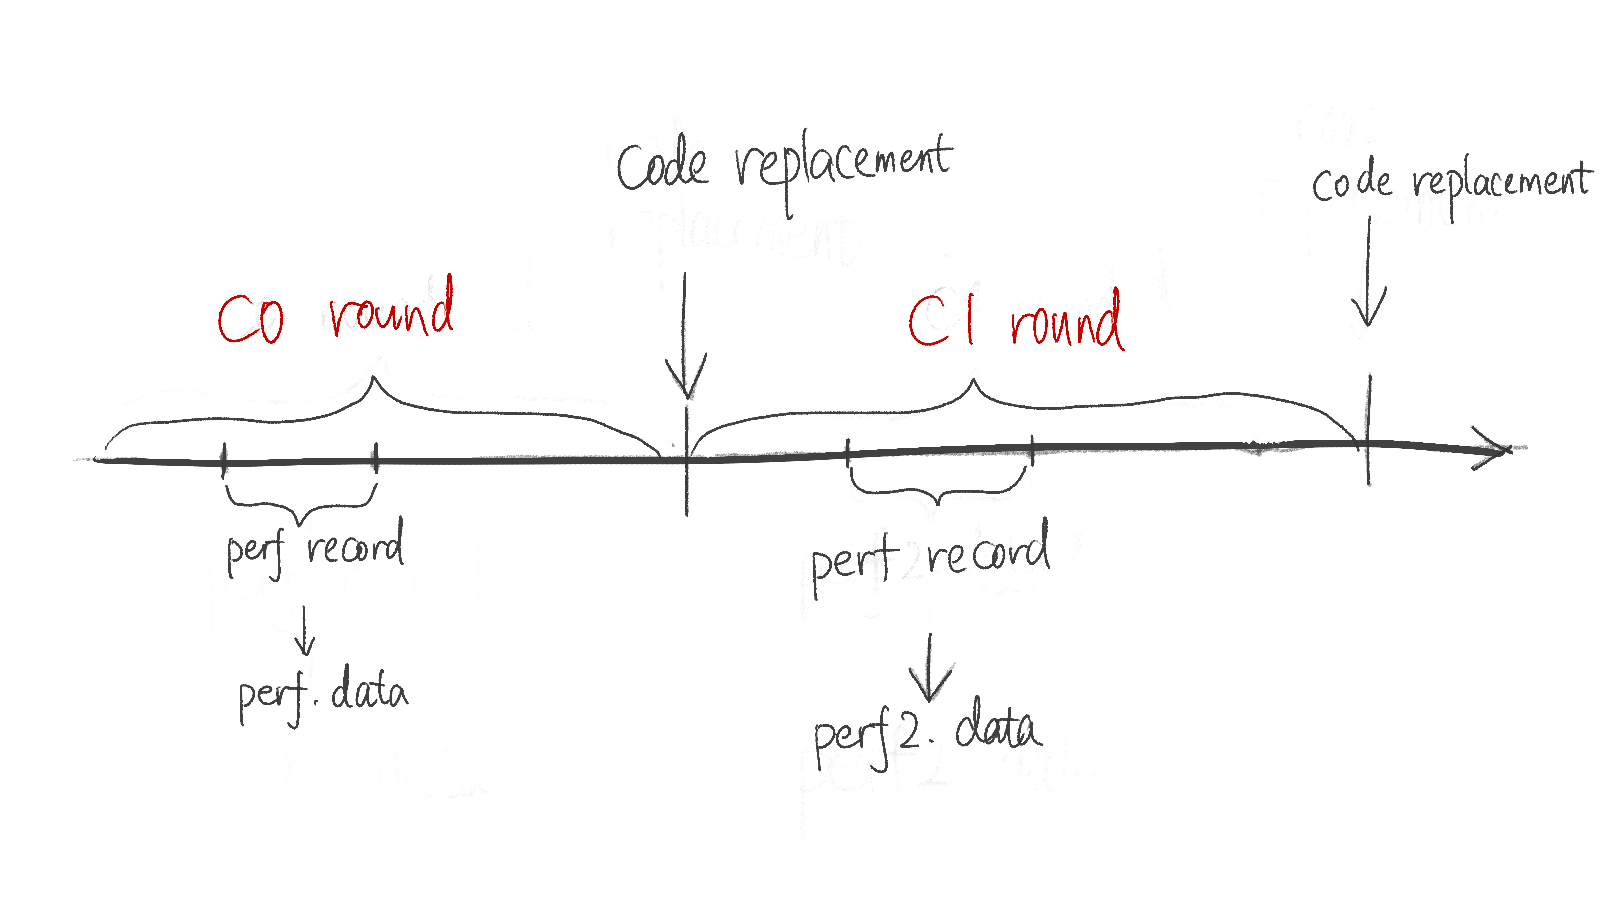 Code replacement
code replacement
C0 round
C1 round
perf record
perf record
perf.data
perf2.data